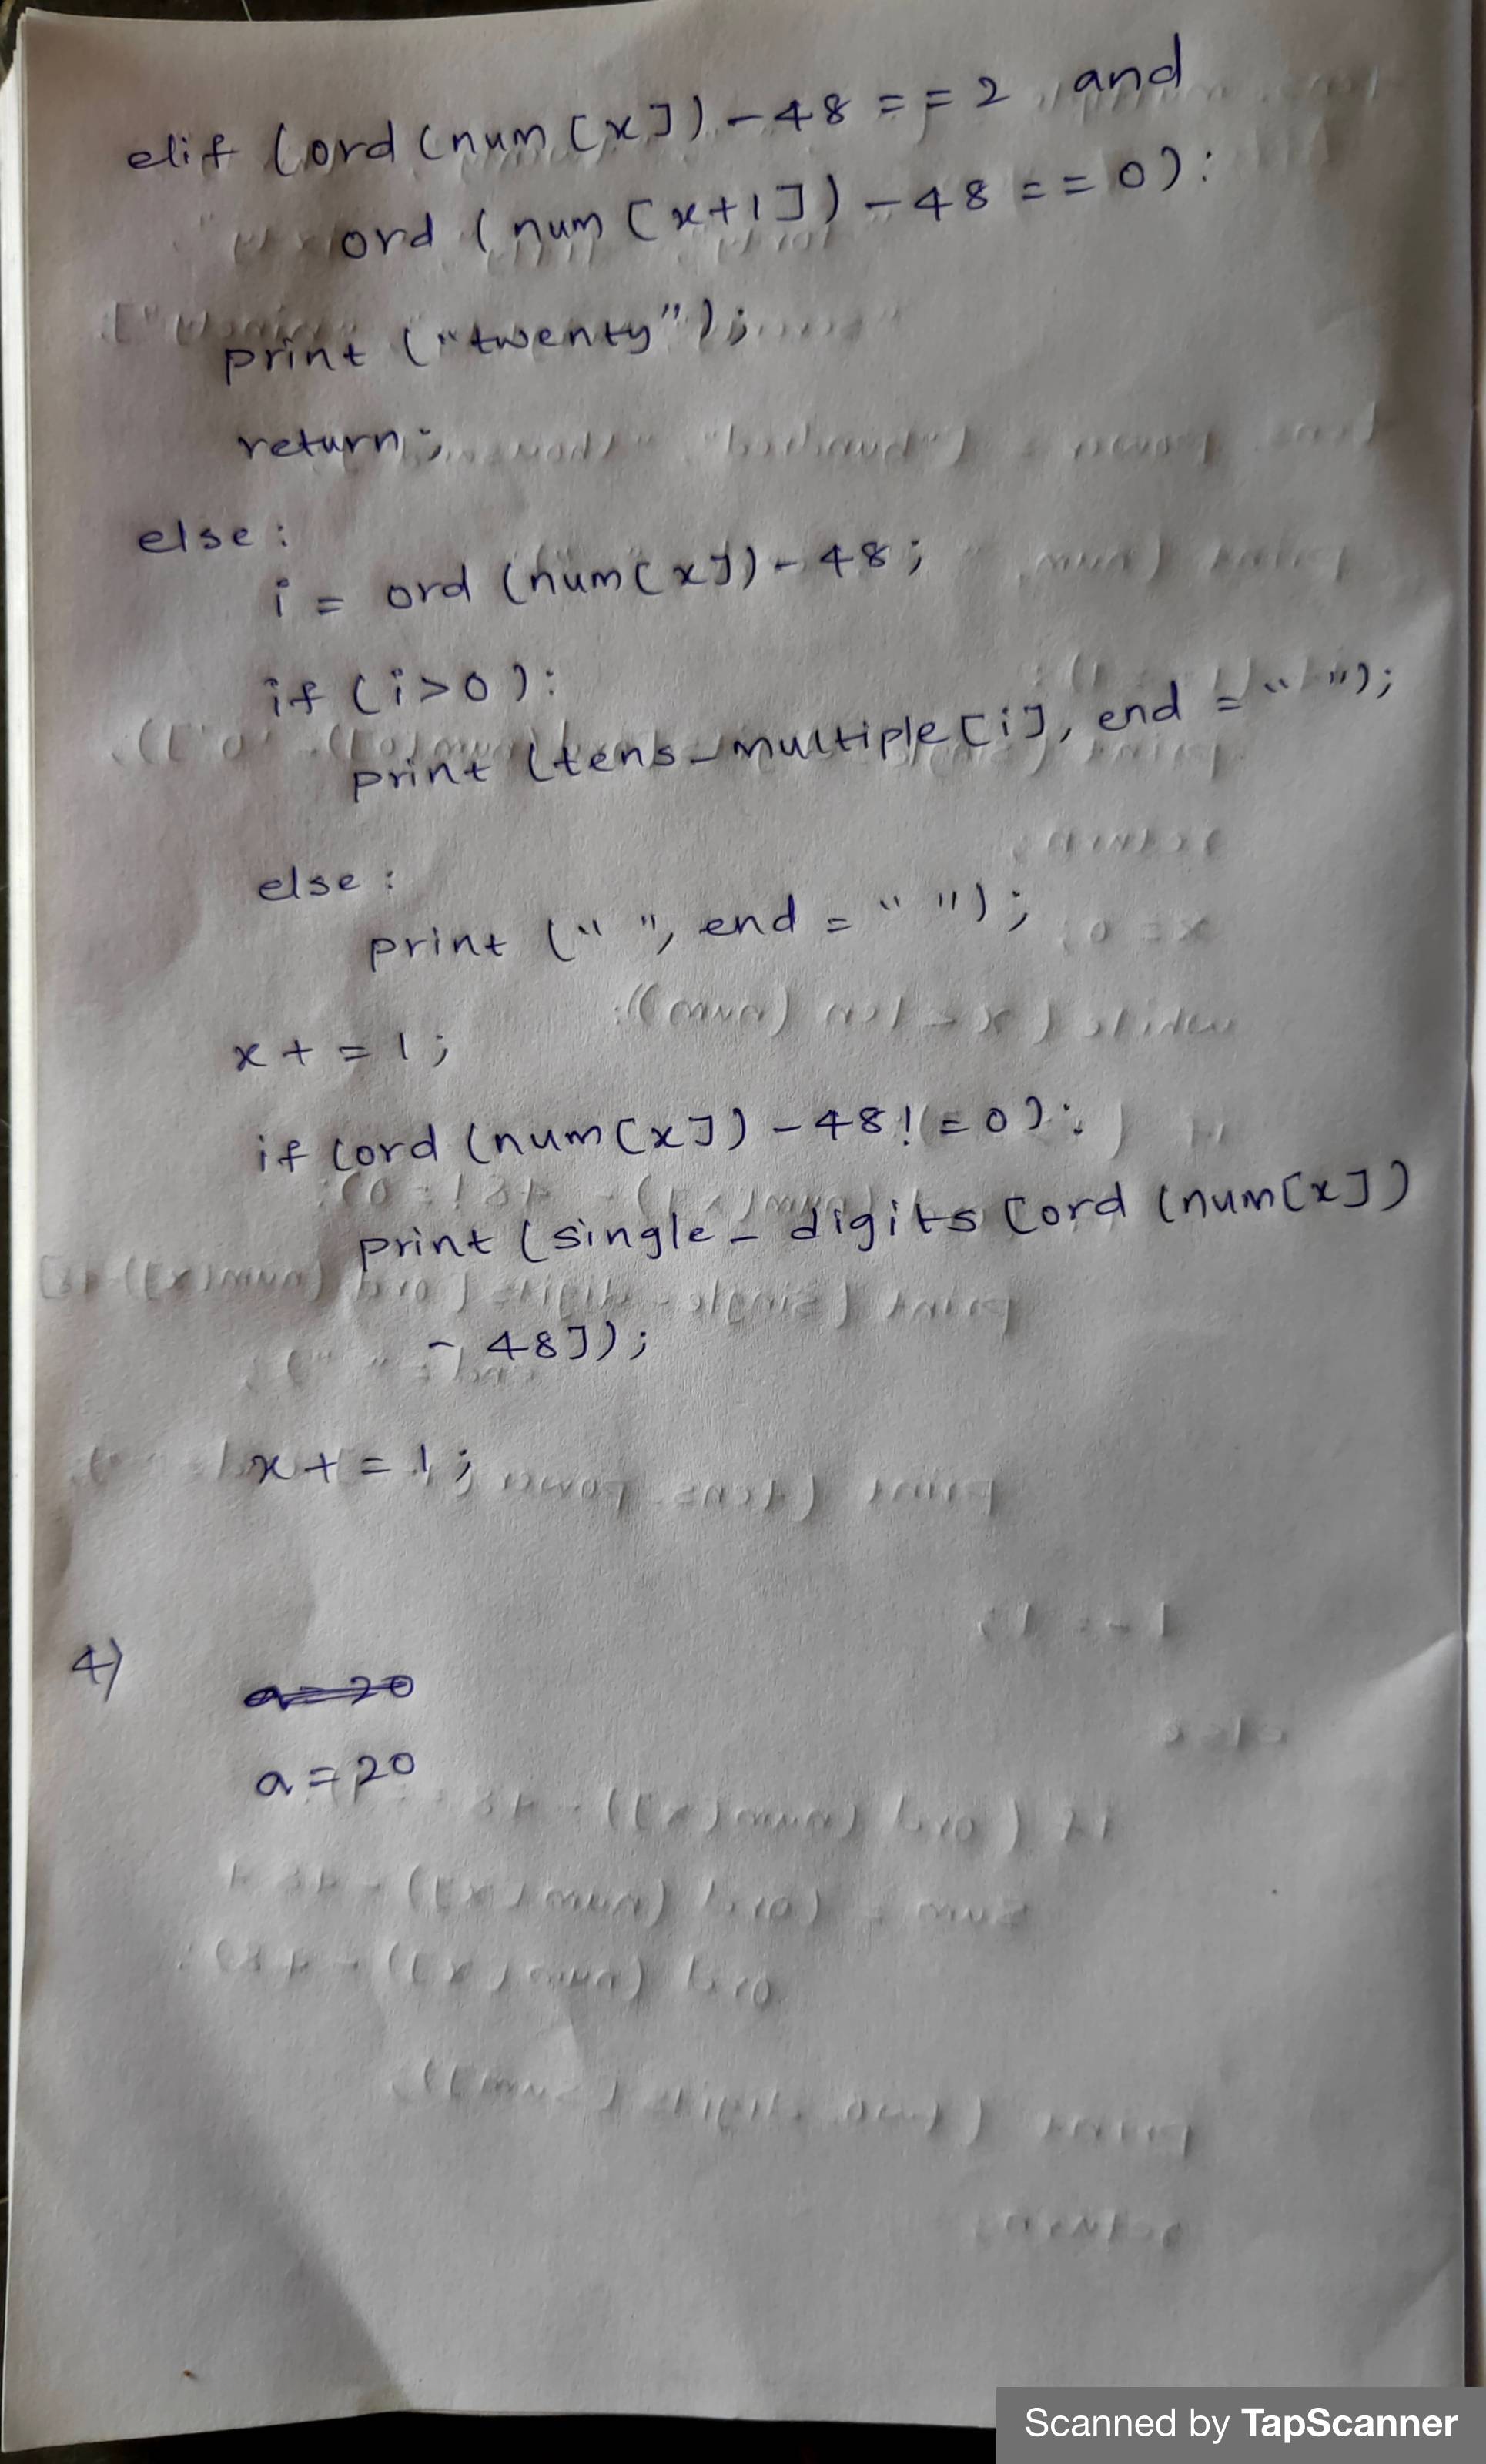 elif (ord (num [x]) - 48 == 2 and
ord (num [x+1]) - 48 == 0):
print ("twenty");
return;
else:
i = ord (num[x]) - 48;
if (i>0):
print (tens_multiple[i], end = " ");
else:
print (" ", end = " ");
x += 1;
if (ord (num[x]) - 48 != 0):
print (single_digits [ord (num[x])
- 48]);
x += 1;
4)
a = 20
a = 20
Scanned by TapScanner